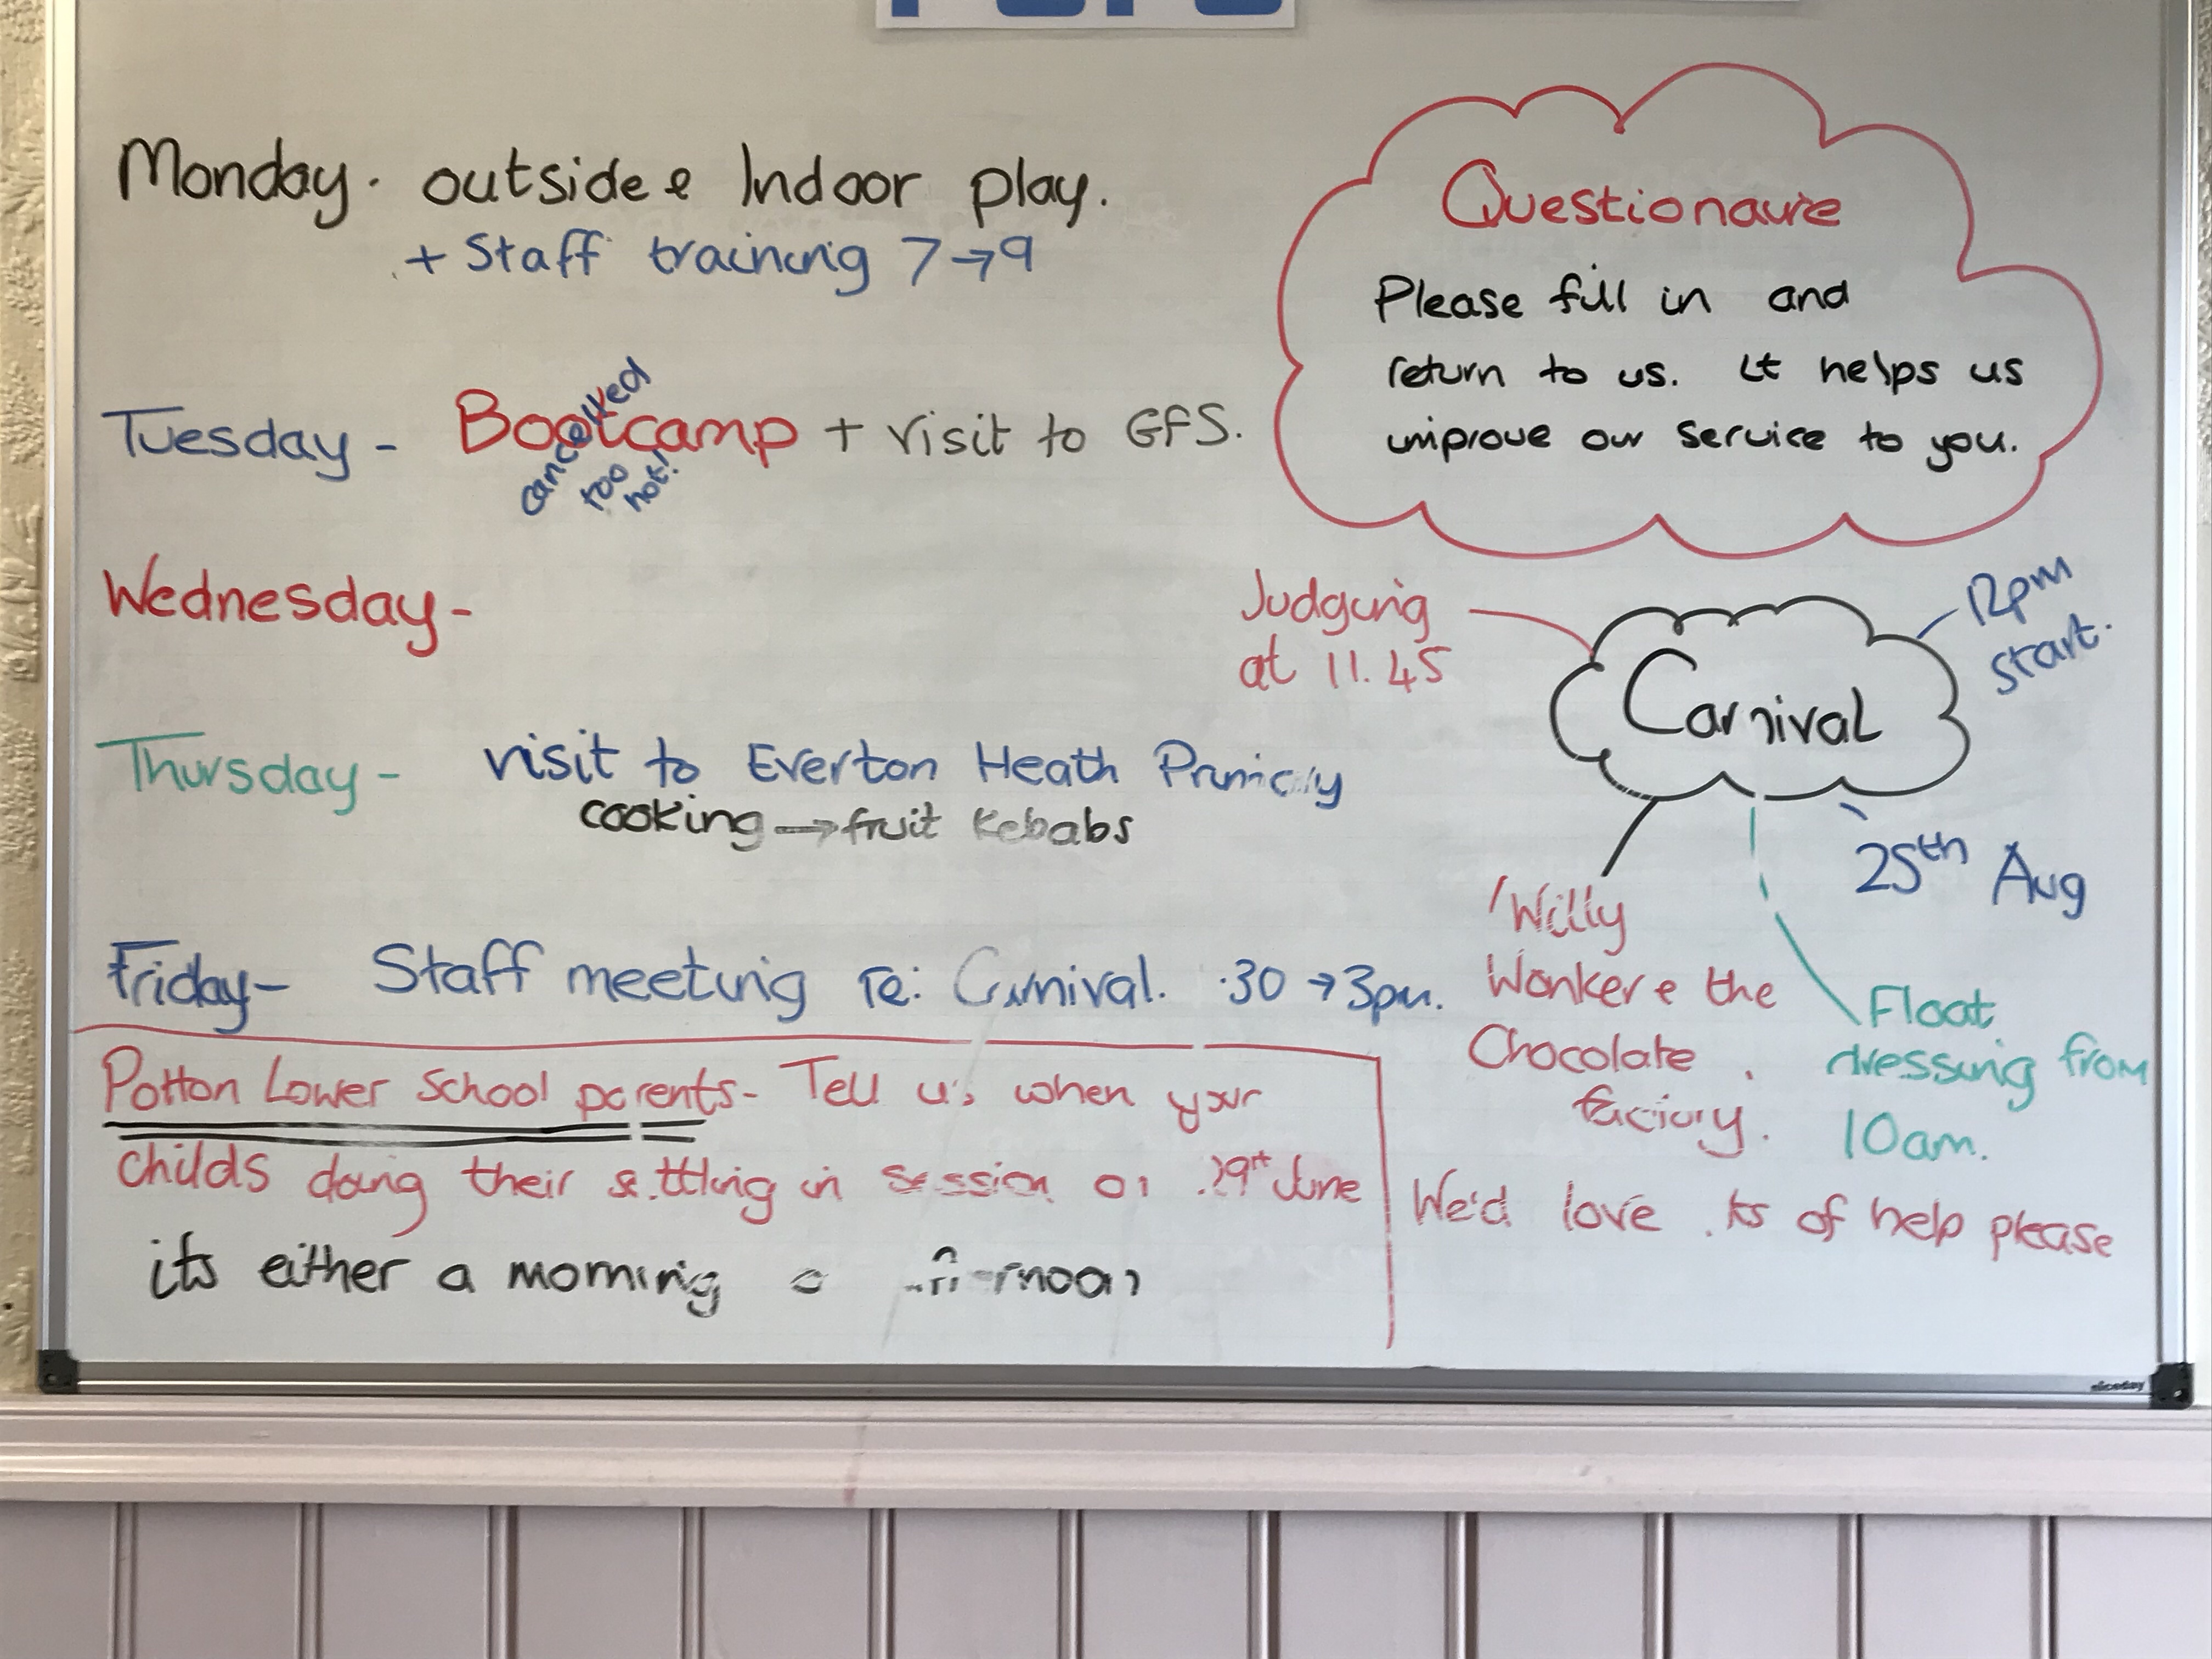 Monday. outside & Indoor play.
+ Staff training 7→9
Tuesday - Bootcamp + visit to GFS.
cancelled
too
hot!
Wednesday-
Thursday - visit to Everton Heath Primary
cooking → fruit Kebabs
Friday- Staff meeting re: Carnival. 30 → 3pm.
Potton Lower School parents- Tell us when your
childs doing their settling in session on 29th June
its either a morning afternoon
Questionaire
Please fill in and
return to us. It helps us
improve our service to you.
Judging
at 11.45
Carnival
12pm
start.
25th Aug
Willy
Wonker & the
Chocolate
factory.
Float
dressing from
10am.
We'd love of help please
niceday